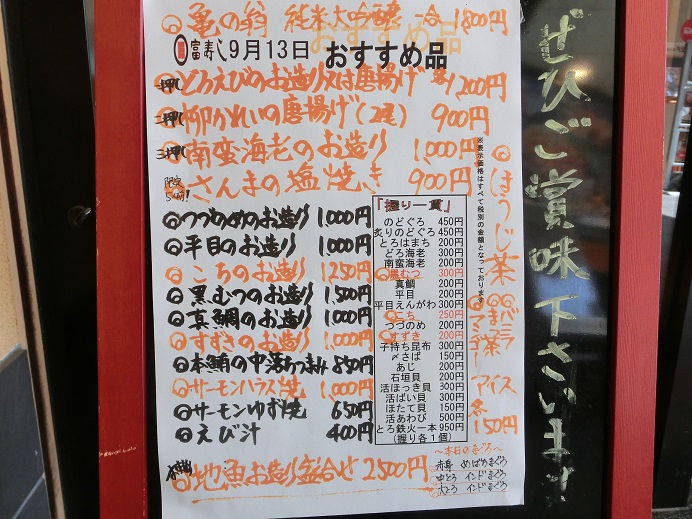 亀の翁 純米大吟醸 一合 1,800円
富寿し 9月13日 おすすめ品
一押し どろえびのお造り又は唐揚げ 1,200円
二押し 柳かれいの唐揚げ(2尾) 900円
三押し 南蛮海老のお造り 1,000円
限定5個! さんまの塩焼き 900円
つづのめのお造り 1,000円
平目のお造り 1,000円
こちのお造り 1250円
黒むつのお造り 1,500円
真鯛のお造り 1,000円
すずきのお造り 1,000円
本鮪の中落ちつまみ 850円
サーモンハラス焼 1,000円
サーモンゆず焼 650円
えび汁 400円
地魚お造り盛合せ 2500円
「握り一貫」
のどぐろ 450円
炙りのどぐろ 450円
とろはまち 200円
どろ海老 300円
南蛮海老 200円
黒むつ 300円
真鯛 200円
平目 200円
平目えんがわ 300円
こち 250円
つづのめ 200円
すずき 200円
子持ち昆布 300円
〆さば 150円
あじ 200円
石垣貝 200円
活ほっき貝 300円
活ばい貝 300円
ほたて貝 150円
活あわび 500円
とろ鉄火一本 950円
(握り各1個)
※表示価格はすべて税別の金額となっております
ほうじ茶
バニラ
アイス
各150円
~本日のまぐろ~
赤身 めばちまぐろ
中とろ インドまぐろ
大とろ インドまぐろ
ぜひご賞味下さいませ